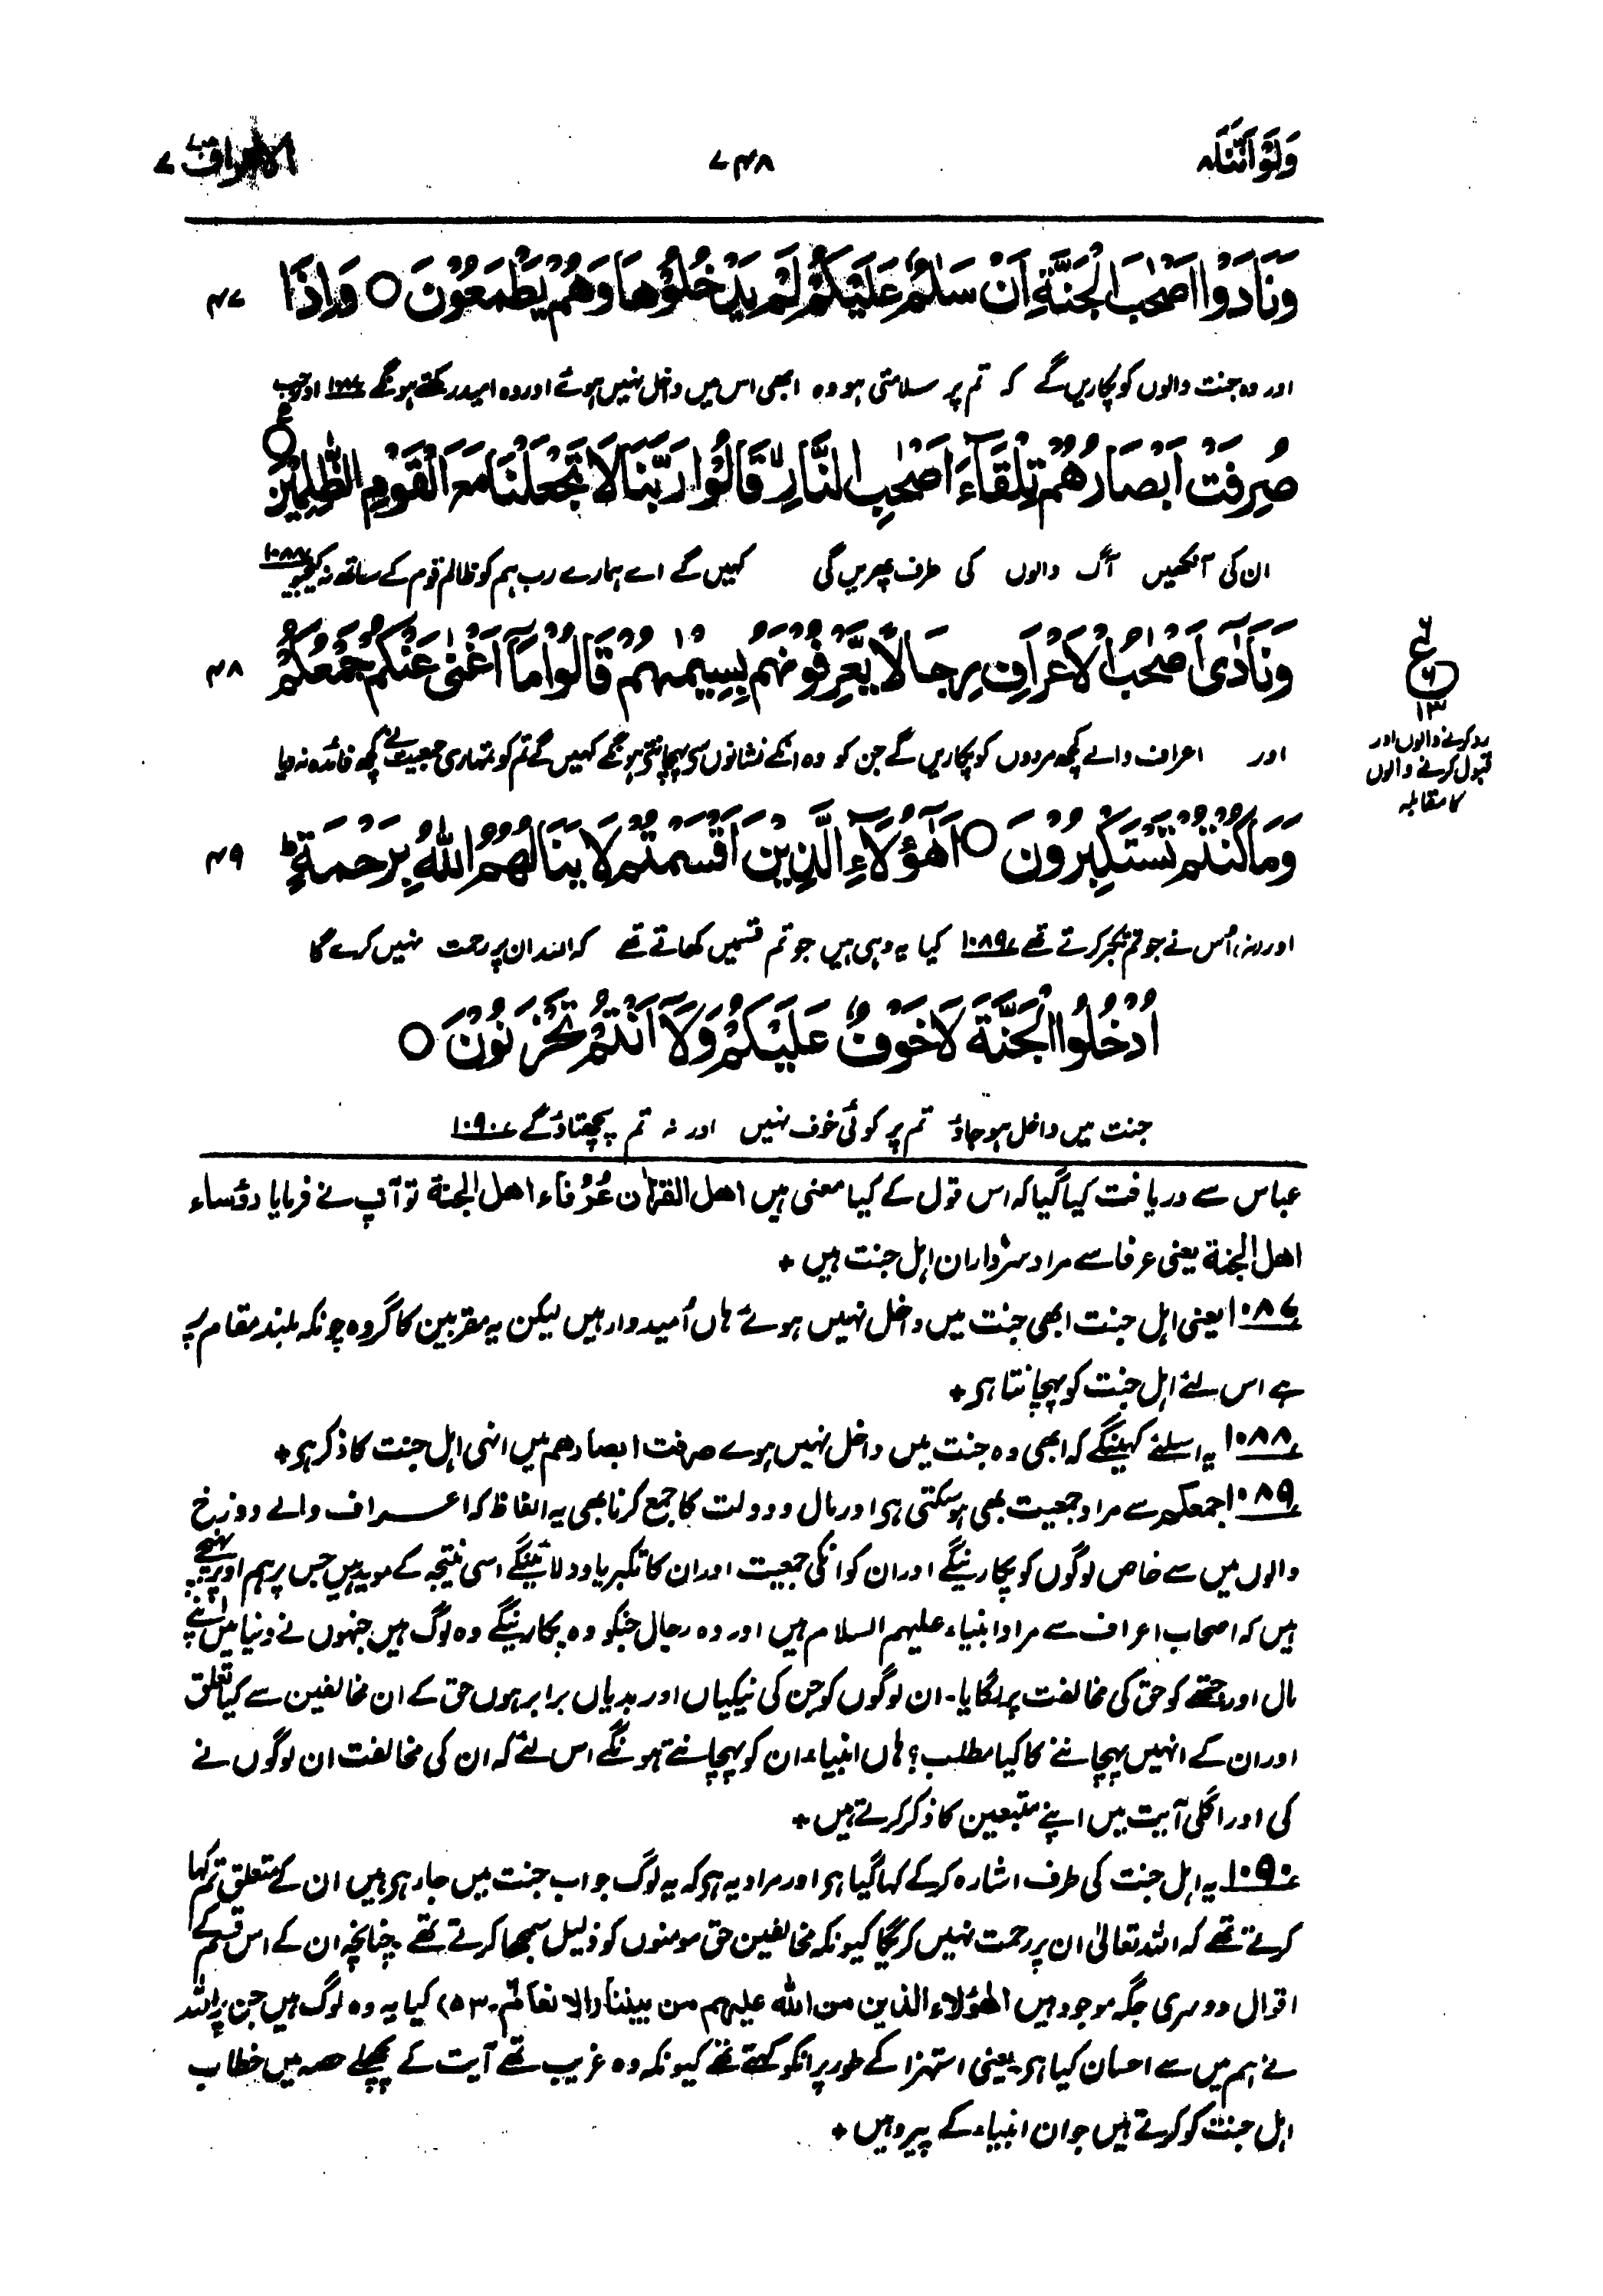 ولو اننا ۸
۷۴۸
الاعراف ۷
وَنَادَوْا اَصْحٰبَ الْجَنَّةِ اَنْ سَلٰمٌ عَلَيْكُمْ لَمْ يَدْخُلُوْهَا وَهُمْ يَطْمَعُوْنَ ○ وَاِذَا ۴۷
اور وہ جنت والوں کو پکاریں گے کہ تم پر سلامتی ہو وہ ابھی اس میں داخل نہیں ہوئے اور وہ امید رکھتے ہونگے ۱۰۸۷ اور جب
صُرِفَتْ اَبْصَارُهُمْ تِلْقَآءَ اَصْحٰبِ النَّارِ ۙ قَالُوْا رَبَّنَا لَا تَجْعَلْنَا مَعَ الْقَوْمِ الظّٰلِمِيْنَ ○ ع
ان کی آنکھیں آگ والوں کی طرف پھیریں گی کہیں گے اے ہمارے رب ہم کو ظالم قوم کے ساتھ نہ کیجیو ۱۰۸۸
وَنَادٰٓى اَصْحٰبُ الْاَعْرَافِ رِجَالًا يَّعْرِفُوْنَهُمْ بِسِيْمٰىهُمْ قَالُوْا مَآ اَغْنٰى عَنْكُمْ جَمْعُكُمْ ۴۸
اور اعراف والے کچھ مردوں کو پکاریں گے جن کو وہ انکے نشانوں سی پہچانتی ہونگے کہیں گے تم کو تمہاری جمعیت نے کچھ فائدہ نہ دیا
وَمَا كُنْتُمْ تَسْتَكْبِرُوْنَ ○ اَهٰٓؤُلَآءِ الَّذِيْنَ اَقْسَمْتُمْ لَا يَنَالُهُمُ اللّٰهُ بِرَحْمَةٍ ؕ ۴۹
اور (نہ) اُس نے جو تم تکبر کرتے تھے ۱۰۸۹ کیا یہ وہی ہیں جو تم قسمیں کھاتے تھے کہ اللہ ان پر رحمت نہیں کرے گا
اُدْخُلُوا الْجَنَّةَ لَا خَوْفٌ عَلَيْكُمْ وَلَآ اَنْتُمْ تَحْزَنُوْنَ ○
جنت میں داخل ہو جاؤ تم پر کوئی خوف نہیں اور نہ تم پچھتاؤ گے ۱۰۹۰
۶
ع
۶
۱۳
رد کرنے والوں اور
قبول کرنے والوں
کا مقابلہ
عباس سے دریافت کیا گیا کہ اس قول کے کیا معنی ہیں اهل القراٰن عُرَفَاء اهل الجنة تو آپ نے فرمایا رؤساء
اهل الجنة یعنی عرفا سے مراد سرداران اہل جنت ہیں +
۱۰۸۷ یعنی اہل جنت ابھی جنت میں داخل نہیں ہوئے ہاں اُمیدوار ہیں لیکن یہ مقربین کا گروہ چونکہ بلند مقام پر
ہے اس لئے اہل جنت کو پہچانتا ہی +
۱۰۸۸ یہ اسلئے کہینگے کہ ابھی وہ جنت میں داخل نہیں ہوے صرفت ابصارهم میں انہی اہل جنت کا ذکر ہی +
۱۰۸۹ جمعكم سے مراد جمعیت بھی ہو سکتی ہی اور مال و دولت کا جمع کرنا بھی یہ الفاظ کہ اعراف والے دوزخ
والوں میں سے خاص لوگوں کو پکارینگے اور ان کو انکی جمعیت اور ان کا تکبر یاد دلائینگے اسی نتیجہ کے موید ہیں جس پر ہم اوپر پہنچے
ہیں کہ اصحاب اعراف سے مراد انبیاء علیہم السلام ہیں اور وہ رجال جنکو وہ پکارینگے وہ لوگ ہیں جنہوں نے دنیا میں اپنے
مال اور جتھے کو حق کی مخالفت پر لگایا۔ ان لوگوں کو جن کی نیکیاں اور بدیاں برابر ہوں حق کے ان مخالفین سے کیا تعلق
اور ان کے انہیں پہچاننے کا کیا مطلب؟ ہاں انبیاء ان کو پہچانتے ہونگے اس لئے کہ ان کی مخالفت ان لوگوں نے
کی اور اگلی آیت میں اپنے متبعین کا ذکر کرتے ہیں +
۱۰۹۰ یہ اہل جنت کی طرف اشارہ کر کے کہا گیا ہی اور مراد یہ ہی کہ یہ لوگ جو اب جنت میں جا رہی ہیں ان کے متعلق تم کہا
کرتے تھے کہ اللہ تعالیٰ ان پر رحمت نہیں کریگا کیونکہ مخالفین حق مومنوں کو ذلیل سمجھا کرتے تھے چنانچہ ان کے اس قسم کے
اقوال دوسری جگہ موجود ہیں اهٰؤلاء الذین من اللّٰه علیهم من بیننا (الانعام ۵۳) کیا یہ وہ لوگ ہیں جن پر اللہ
نے ہم میں سے احسان کیا ہی۔ یعنی استہزا کے طور پر انکو کہتے تھے کیونکہ وہ غریب تھے آیت کے پچھلے حصہ میں خطاب
اہل جنت کو کرتے ہیں جو ان انبیاء کے پیرو ہیں +